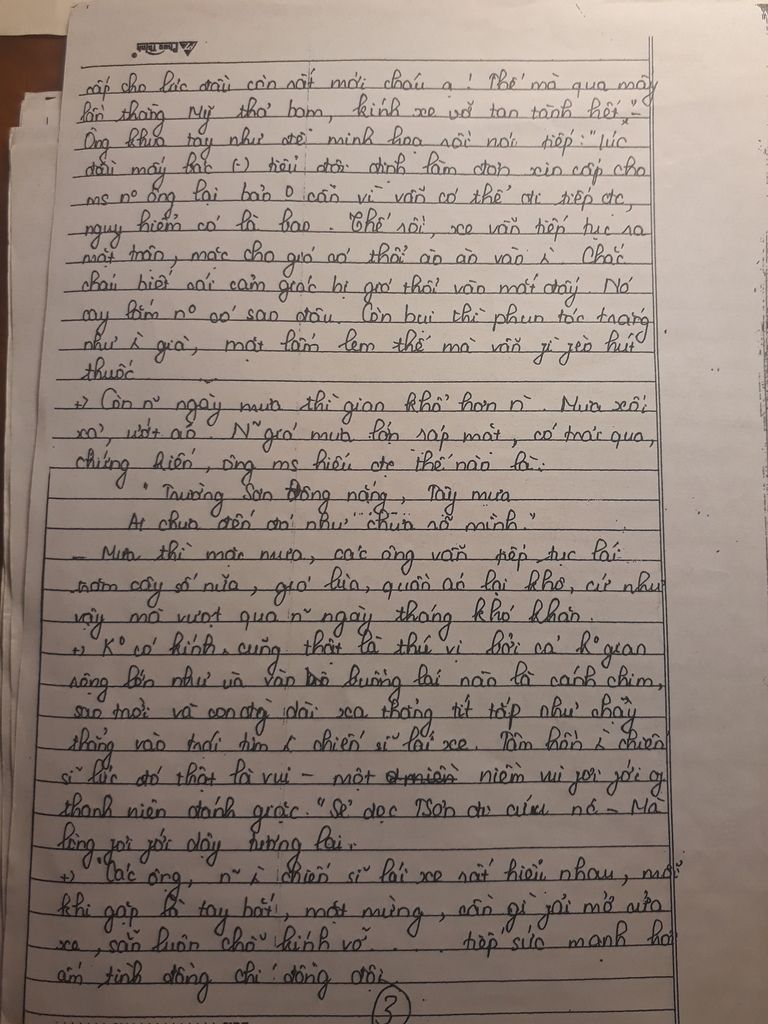 Phúc Thịnh
cấp cho lúc đầu còn rất mới cháu ạ! Thế mà qua mấy
lần thằng Mỹ thả bom, kính xe vỡ tan tành hết." -
Ông khua tay như để minh hoạ rồi nói tiếp: "Lúc
đầu mấy bác (-) tiểu đội định làm đơn xin cấp cho
ms nº ông lại bảo 0 cần vì vẫn có thể đi tiếp đc,
nguy hiểm có là bao. Thế rồi, xe vẫn tiếp tục ra
mặt trận, mặc cho gió cứ thổi ào ào vào ì. Chắc
cháu biết cái cảm giác bị gió thổi vào mắt đấy. Nó
cay lắm nº có sao đâu. Còn bụi thì phun tóc trắng
như ì già, mặt lấm lem thế mà vẫn phì phèo hút
thuốc
+) Còn n~ ngày mưa thì gian khổ hơn n`. Mưa xối
xả, ướt áo. N~ giọt mưa lớn ráp mặt, có trải qua,
chứng kiến, ông ms hiểu đc thế nào là:
" Trường Sơn Đông nắng, Tây mưa
Ai chưa đến đó như chưa rõ mình."
- Mưa thì mặc mưa, các ông vẫn tiếp tục lái
trăm cây số nữa, gió lùa, quần áo lại khô, cứ như
vậy mà vượt qua n~ ngày tháng khó khăn.
+) Kº có kính, cũng thật là thú vị bởi cả kº gian
rộng lớn như ùa vào buồng lái nào là cánh chim,
sao trời và con đg dài xa thẳng tít tắp như chạy
thẳng vào trái tim ì chiến sĩ lái xe. Tâm hồn ì chiến
sĩ lúc đó thật là vui - một niềm vui phơi phới of
thanh niên đánh giặc. "Sẻ dọc TSơn đi cứu nc - Mà
lòng phơi phới dậy tương lai.
+) Các ông, n~ ì chiến sĩ lái xe rất hiểu nhau, mỗi
khi gặp là tay bắt, mặt mừng, cần gì phải mở cửa
xe, sẵn luôn chỗ kính vỡ ..... tiếp sức mạnh hơi
ấm, tình đồng chí đồng đội.
3